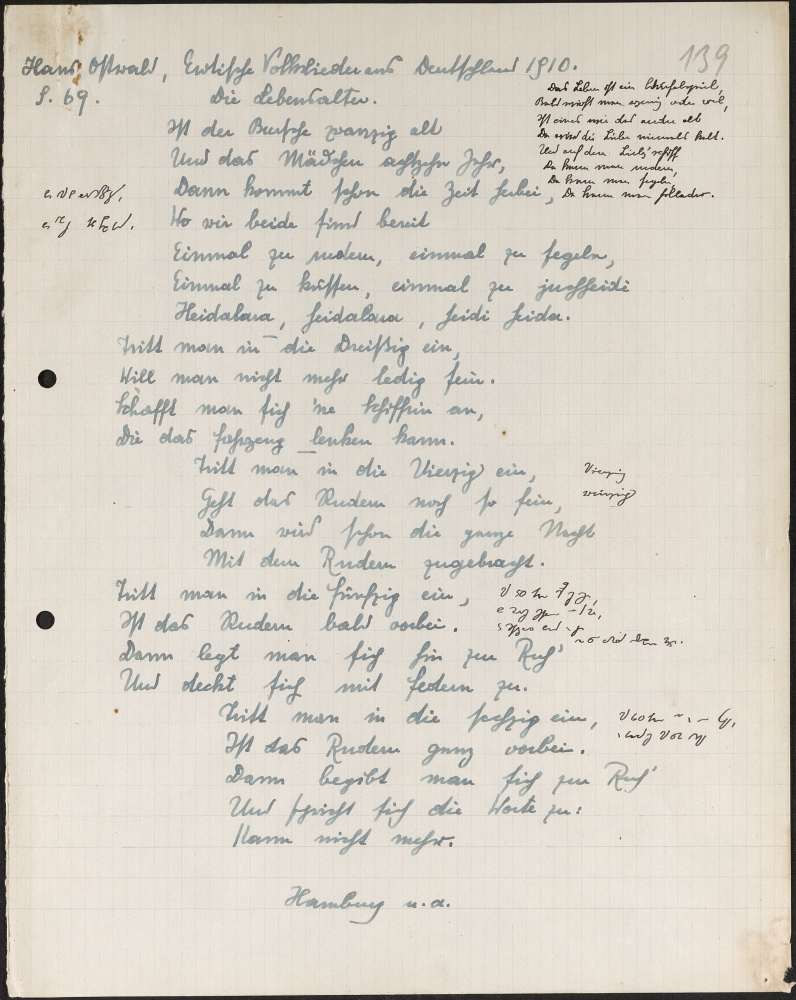 139
Hans Ostwald, Erotische Volkslieder aus Deutschland 1910.
S. 69.
Die Lebensalter.
Das Leben ist ein Würfelspiel,
Bald würfelt man wenig oder viel,
Ist eines wie das andre alt
Da wird die Liebe niemals kalt.
Und auf dem Liebesschiff
Da kann man rudern,
Da kann man segeln,
Da kann man
Ist der Bursche zwanzig alt
Und das Mädchen achtzehn Jahr,
Dann kommt schon die Zeit herbei,
Wo wir beide sind bereit
Einmal zu rudern, einmal zu segeln,
Einmal zu küssen, einmal zu juchheidi
Heidalara, heidalara, heidi heida.
Tritt man in die Dreißig ein,
Will man nicht mehr ledig sein.
Schafft man sich 'ne Schiffrin an,
Die das Fahrzeug lenken kann.
Tritt man in die Vierzig ein,
Geht das Rudern noch so fein,
Dann wird schon die ganze Nacht
Mit dem Rudern zugebracht.
Vierzig
Tritt man in die fünfzig ein,
Ist das Rudern bald vorbei.
Dann legt man sich hin zur Ruh'
Und deckt sich mit Federn zu.
Tritt man in die sechzig ein,
Ist das Rudern ganz vorbei.
Dann begibt man sich zur Ruh'
Und spricht sich die Worte zu:
Kann nicht mehr.
Hamburg u. a.